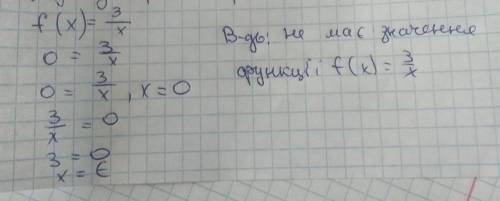 f(x) = 3/x
0 = 3/x
0 = 3/x , x = 0
3/x = 0
3 = 0
x = Є
В-дь: не має значення
функції f(x) = 3/x